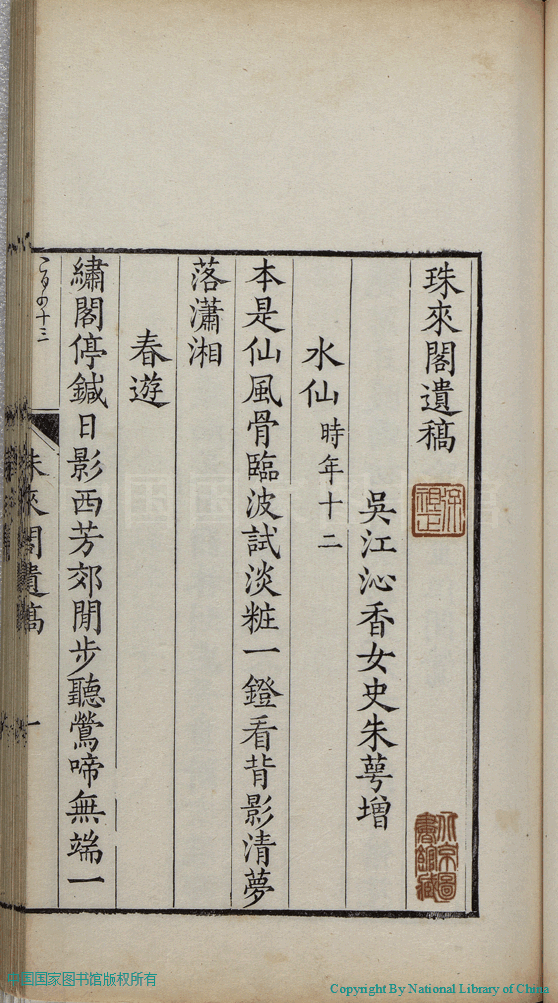 珠來閣遺稿
吳江沁香女史朱蕚增
水仙 時年十二
本是仙風骨臨波試淡粧一鐙看背影清夢
落瀟湘
春遊
繡閣停鍼日影西芳郊閒步聽鶯啼無端一
珠來閣遺稿
一
北京圖書館藏
中国国家图书馆版权所有
Copyright By National Library of China